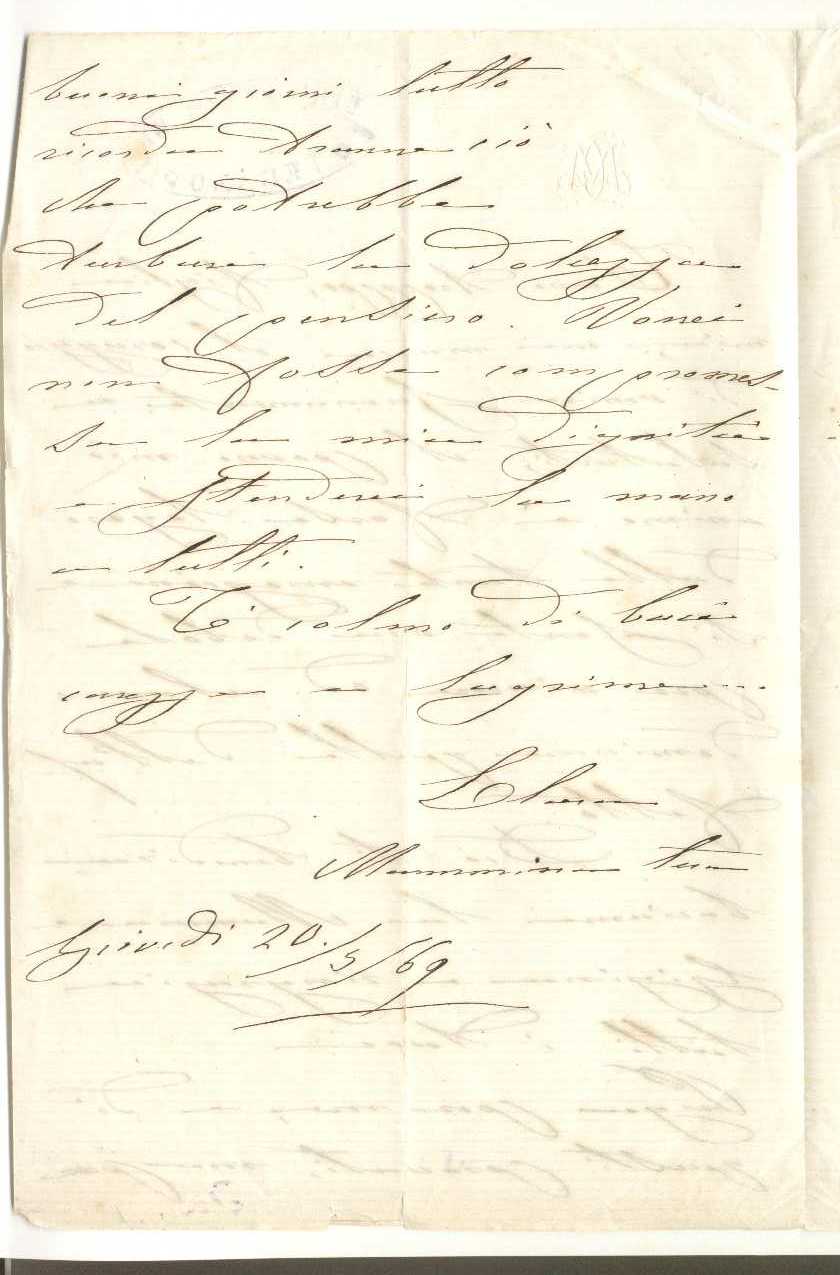 buoni giorni tutto
ricorda tranne ciò
che potrebbe
turbare la dolcezza
del pensiero. Vorrei
non fosse compromes-
sa la mia dignità
e stenderei la mano
a tutti.
Ti colmo di baci
carezze e lagrime...
Clara
Mammina tua
Giovedì 20./5/69